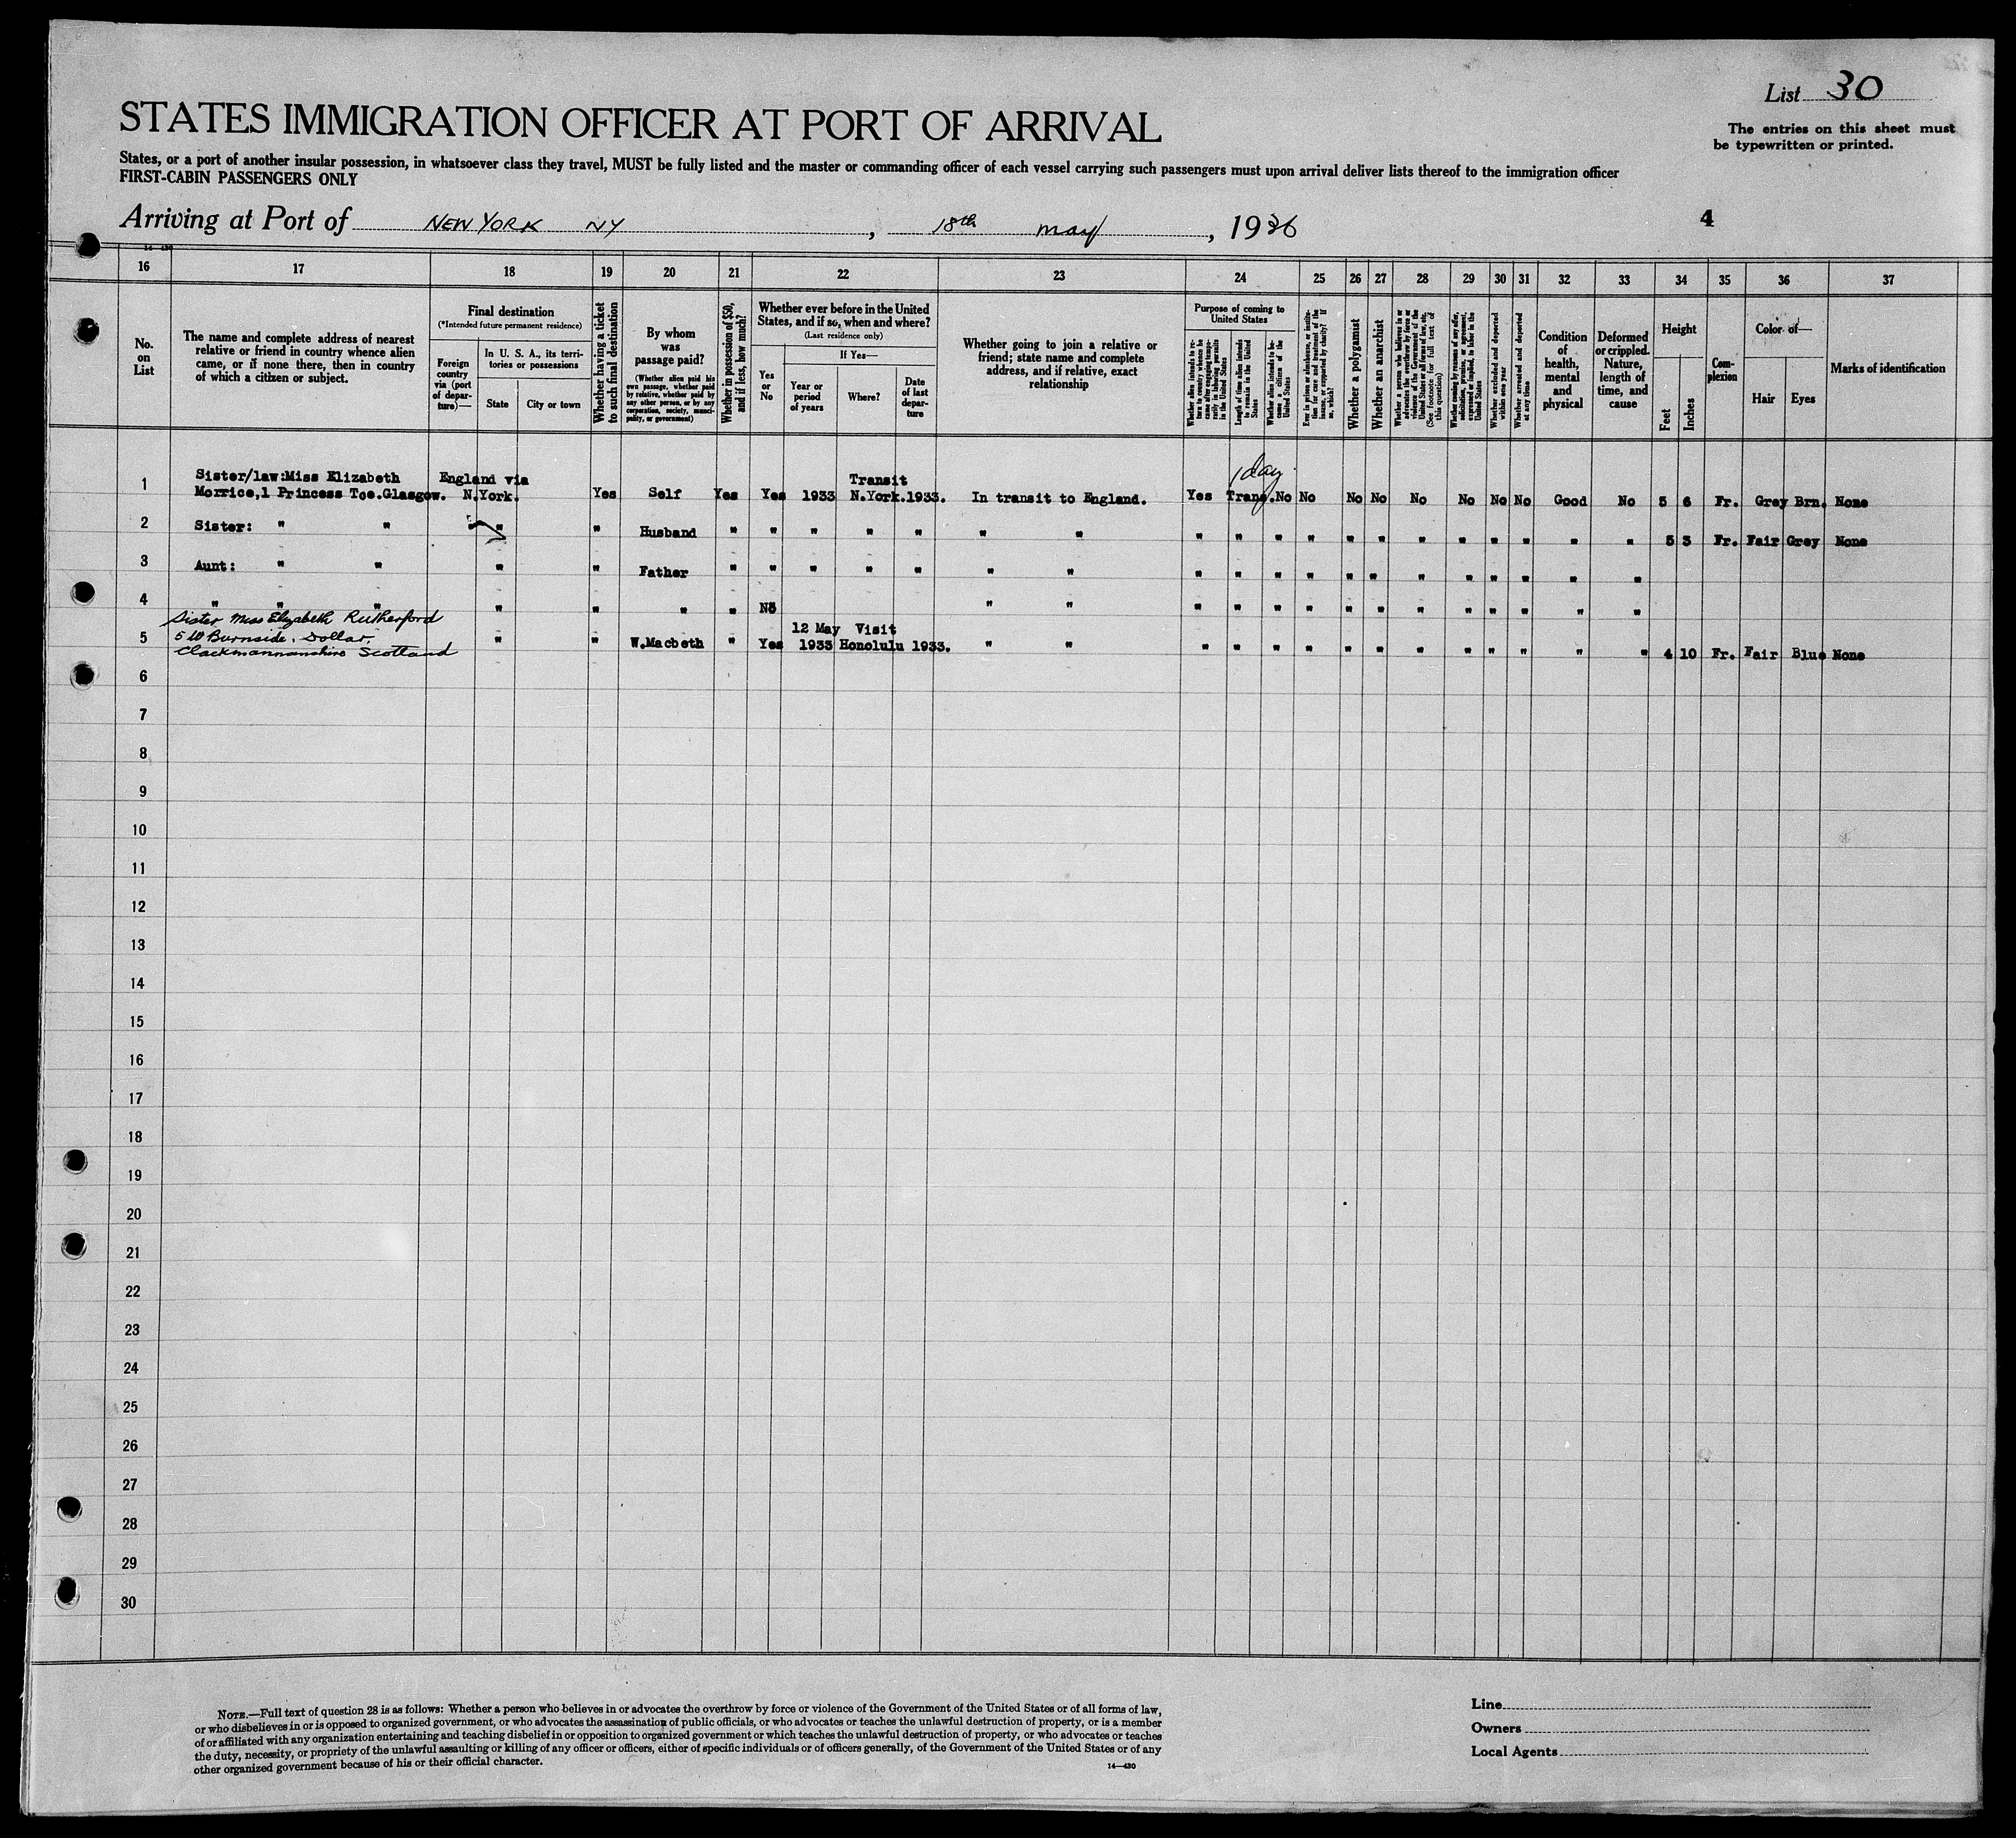 List 30
The entries on this sheet must
be typewritten or printed.
STATES IMMIGRATION OFFICER AT PORT OF ARRIVAL
States, or a port of another insular possession, in whatsoever class they travel, MUST be fully listed and the master or commanding officer of each vessel carrying such passengers must upon arrival deliver lists thereof to the immigration officer
FIRST-CABIN PASSENGERS ONLY
Arriving at Port of NEW YORK NY, 18th may, 1936
4
16 17 18 19 20 21 22 23 24 25 26 27 28 29 30 31 32 33 34 35 36 37
No.
on
List
The name and complete address of nearest
relative or friend in country whence alien
came, or if none there, then in country
of which a citizen or subject.
Final destination
(*Intended future permanent residence)
Foreign
country
via (port
of depar-
ture)—
In U. S. A., its terri-
tories or possessions
State
City or town
Whether having a ticket
to such final destination
By whom
was
passage paid?
(Whether alien paid his
own passage, whether paid
by relative, whether paid by
any other person, or by any
corporation, society, munici-
pality, or government)
Whether in possession of $50,
and if less, how much?
Whether ever before in the United
States, and if so, when and where?
(Last residence only)
Yes
or
No
If Yes—
Year or
period
of years
Where?
Date
of last
depar-
ture
Whether going to join a relative or
friend; state name and complete
address, and if relative, exact
relationship
Purpose of coming to
United States
Whether alien intends to re-
turn to country whence he
came after engaging tempo-
rarily in laboring pursuits
in the United States
Length of time alien intends
to remain in the United
States
Whether alien intends to be-
come a citizen of the
United States
Ever in prison or almshouse, or institu-
tion for care and treatment of the
insane, or supported by charity? If
so, which?
Whether a polygamist
Whether an anarchist
Whether a person who believes in or
advocates the overthrow by force or
violence of the Government of the
United States or all forms of law, etc.
(See footnote for full text of
this question)
Whether coming by reason of any offer,
solicitation, promise, or agreement,
expressed or implied, to labor in the
United States
Whether excluded and deported
within one year
Whether arrested and deported
at any time
Condition
of
health,
mental
and
physical
Deformed
or crippled.
Nature,
length of
time, and
cause
Height
Feet
Inches
Com-
plexion
Color of—
Hair
Eyes
Marks of identification
1 day
Sister/law:Miss Elizabeth England via Transit
1 Morrice,1 Princess Tce.Glasgow. N.York. Yes Self Yes Yes 1933 N.York.1933. In transit to England. Yes Trans.No No No No No No No No Good No 5 6 Fr. Grey Brn. None
2 Sister: " " " " Husband " " " " " " " " " " " " " " " " " " " 5 3 Fr. Fair Grey None
3 Aunt: " " " " Father " " " " " " " " " " " " " " " " " " "
4 " " " " " " " No " " " " " " " " " " " " " "
Sister Miss Elizabeth Rutherford
12 May Visit
5 5 W Burnside, Dollar, " " W.Macbeth " Yes 1933 Honolulu 1933. " " " " " " " " " " " " " " 4 10 Fr. Fair Blue None
Clackmannanshire Scotland
6
7
8
9
10
11
12
13
14
15
16
17
18
19
20
21
22
23
24
25
26
27
28
29
30
NOTE.—Full text of question 28 is as follows: Whether a person who believes in or advocates the overthrow by force or violence of the Government of the United States or of all forms of law,
or who disbelieves in or is opposed to organized government, or who advocates the assassination of public officials, or who advocates or teaches the unlawful destruction of property, or is a member
of or affiliated with any organization entertaining and teaching disbelief in or opposition to organized government or which teaches the unlawful destruction of property, or who advocates or teaches
the duty, necessity, or propriety of the unlawful assaulting or killing of any officer or officers, either of specific individuals or of officers generally, of the Government of the United States or of any
other organized government because of his or their official character.
14—430
Line
Owners
Local Agents